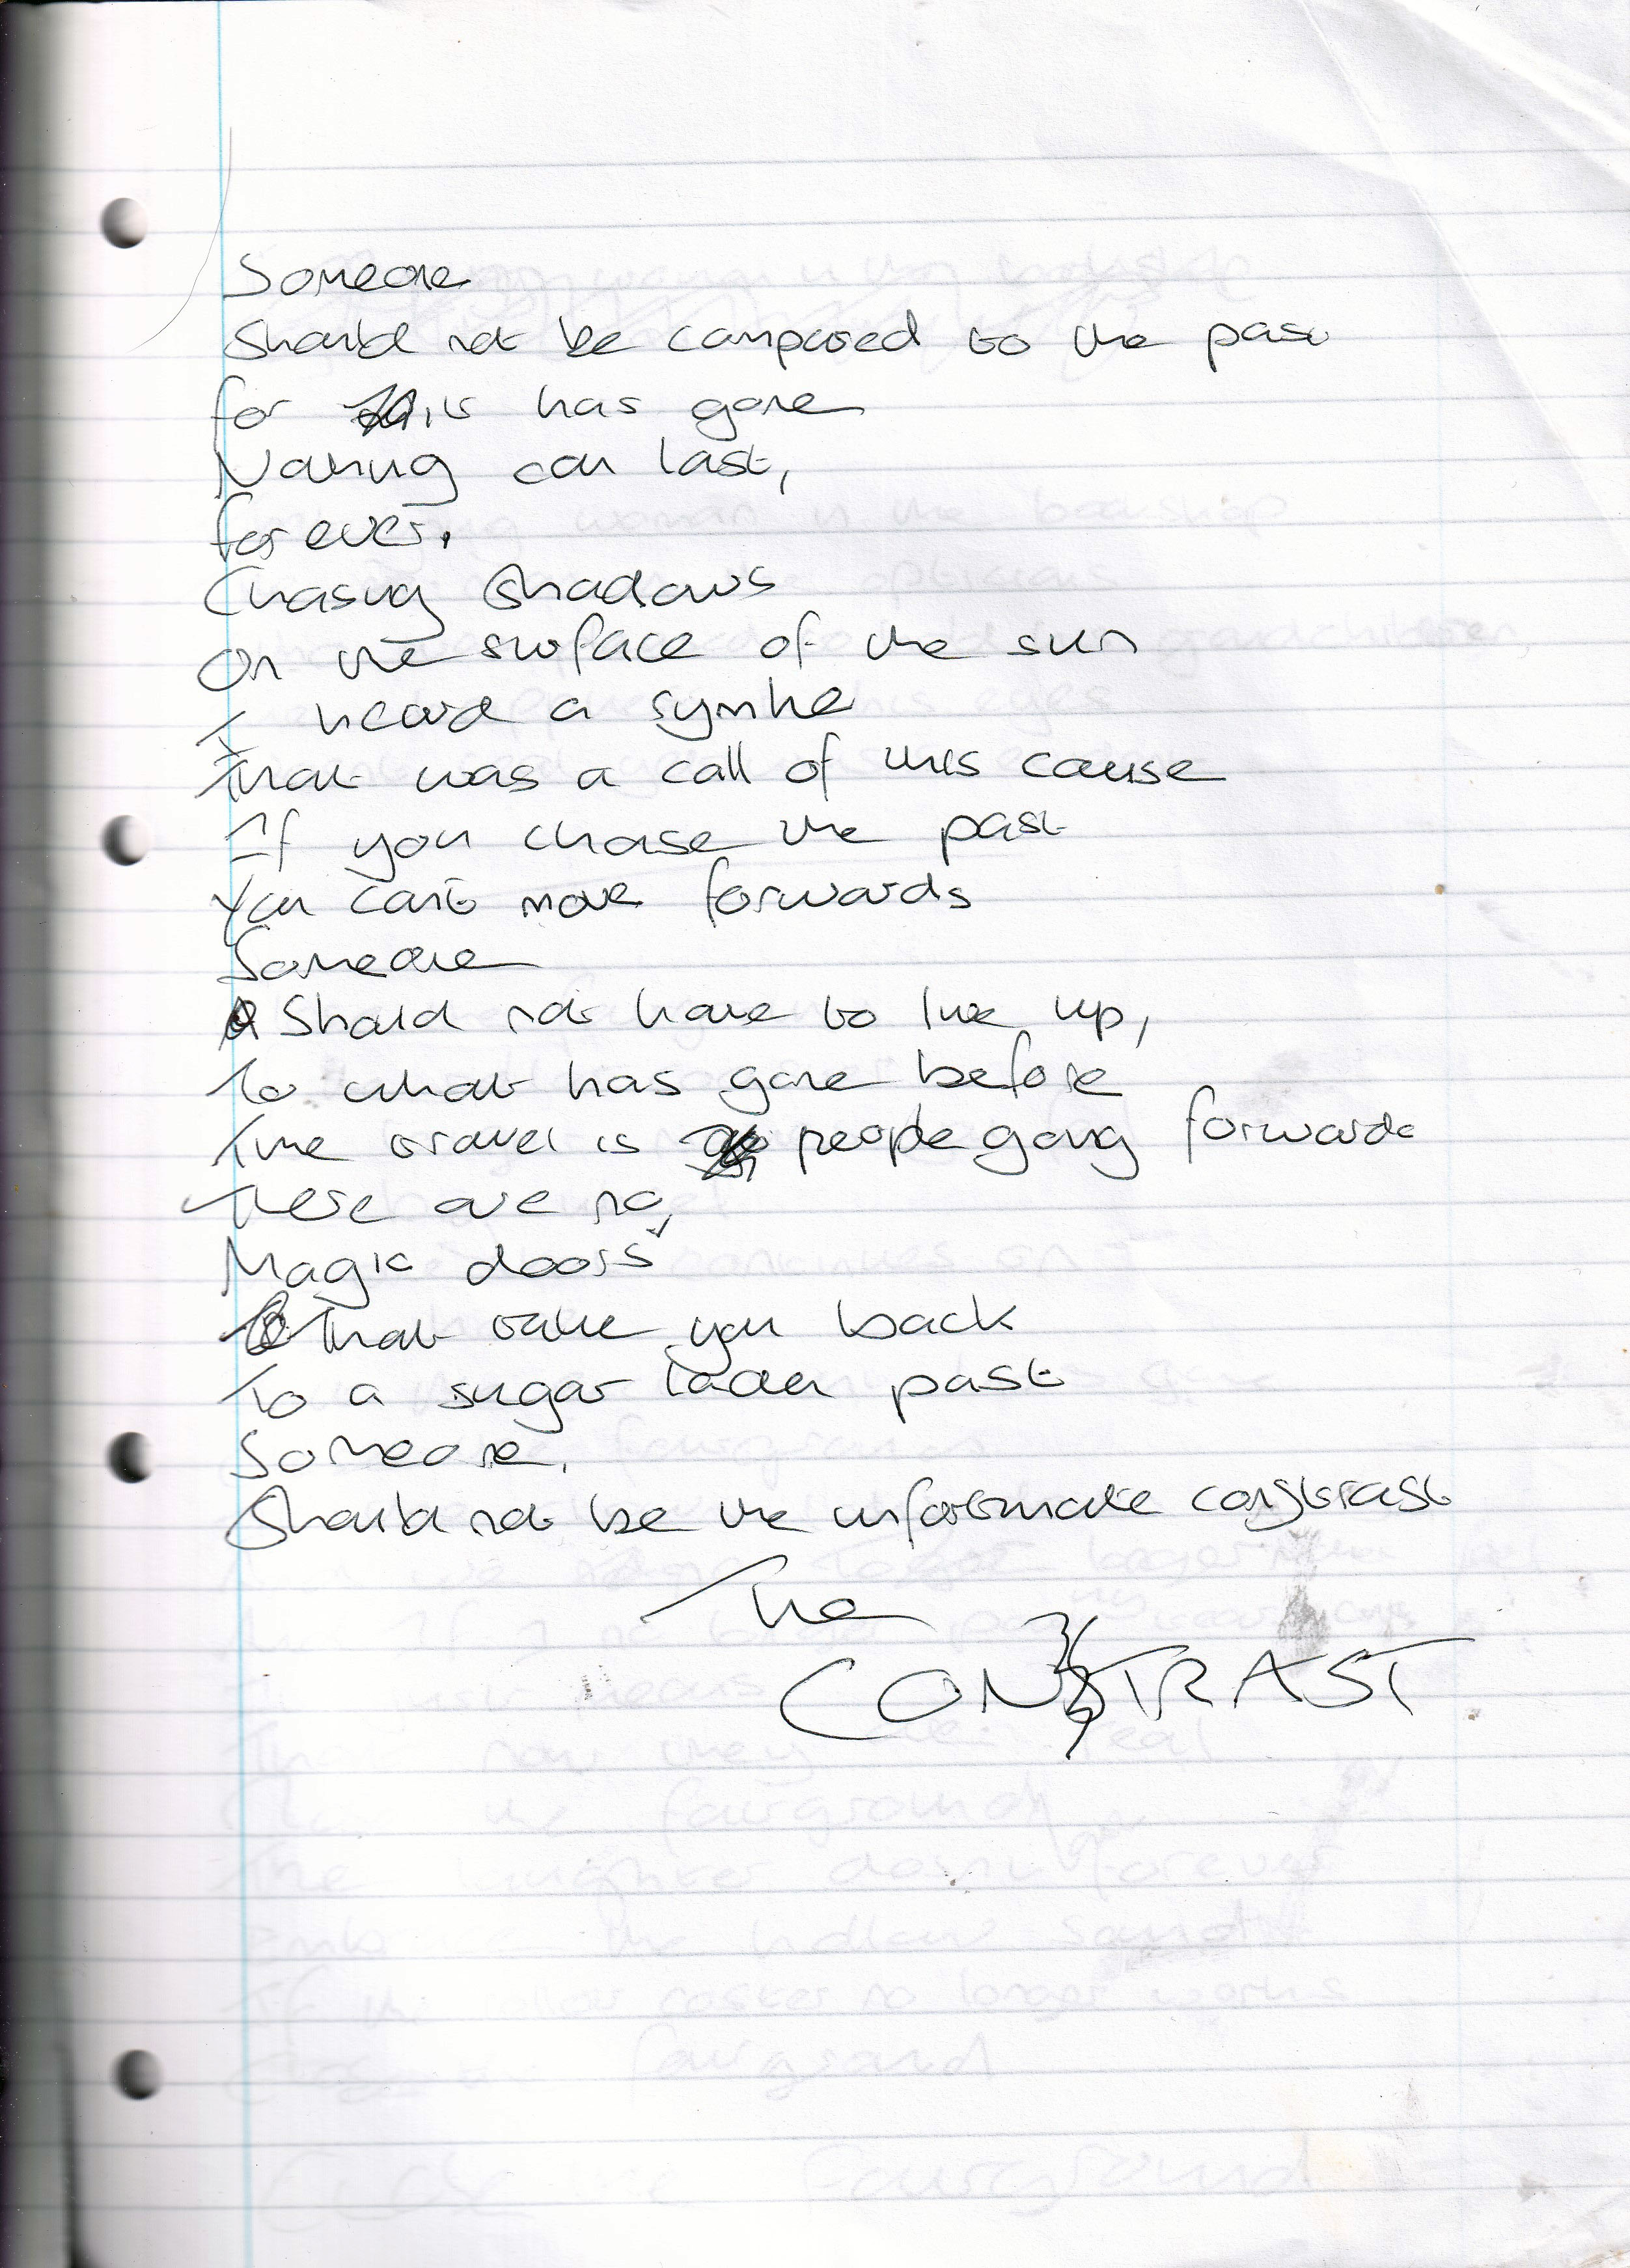 Someone
Should not be compared to the past
for this has gone
Nothing can last,
forever.
Chasing Shadows
On the surface of the sun
I heard a
That was a call of this cause
If you chase the past
You can't move forwards
Someone
Should not have to live up,
To what has gone before
Time travel is people going forwards
There are no,
Magic doors
That take you back
To a sugar laden past
Someone,
Should not be the unfortunate contrast
The
CONTRAST